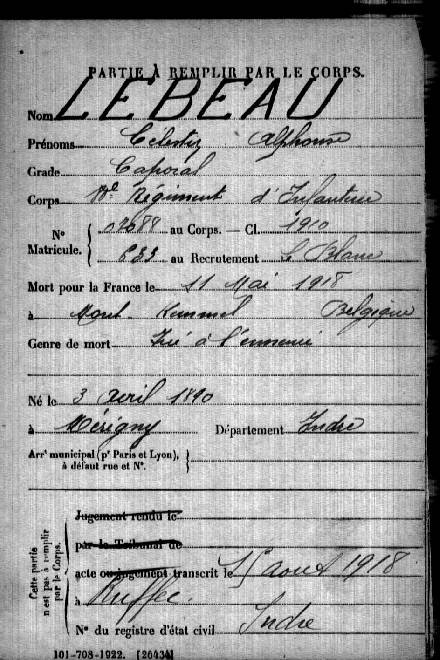 PARTIE À REMPLIR PAR LE CORPS.
Nom LEBEAU
Prénoms Célestin Alphonse
Grade Caporal
Corps Régiment d'Infanterie
N° Matricule. au Corps. — Cl. 1910
au Recrutement Le Blanc
Mort pour la France le 11 Mai 1918
à Mont Kemmel Belgique
Genre de mort Tué à l'ennemi
Né le 3 avril 1890
à Mérigny Département Indre
Arr^t municipal (p^r Paris et Lyon), à défaut rue et N°.
Cette partie n'est pas à remplir par le Corps.
Jugement rendu le
par le Tribunal de
acte ou jugement transcrit le 15 aout 1918
à Ruffec
N° du registre d'état civil Indre
101-708-1922. [26434]